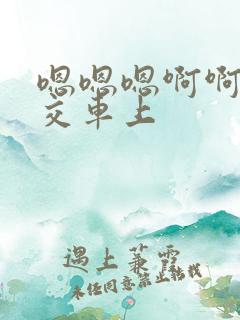 嗯嗯嗯啊啊
交车上
遇上蒹霭
未经同意禁止转载